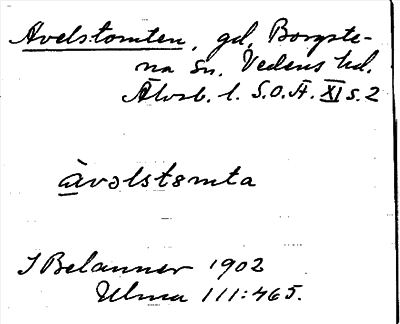 Avelstomten, gd, Borgste-
na sn, Vedens hd.
Älvsb. l. S.O.Ä. XI s. 2
àvəlstomta
I Belanner 1902
Ulma 111:465.